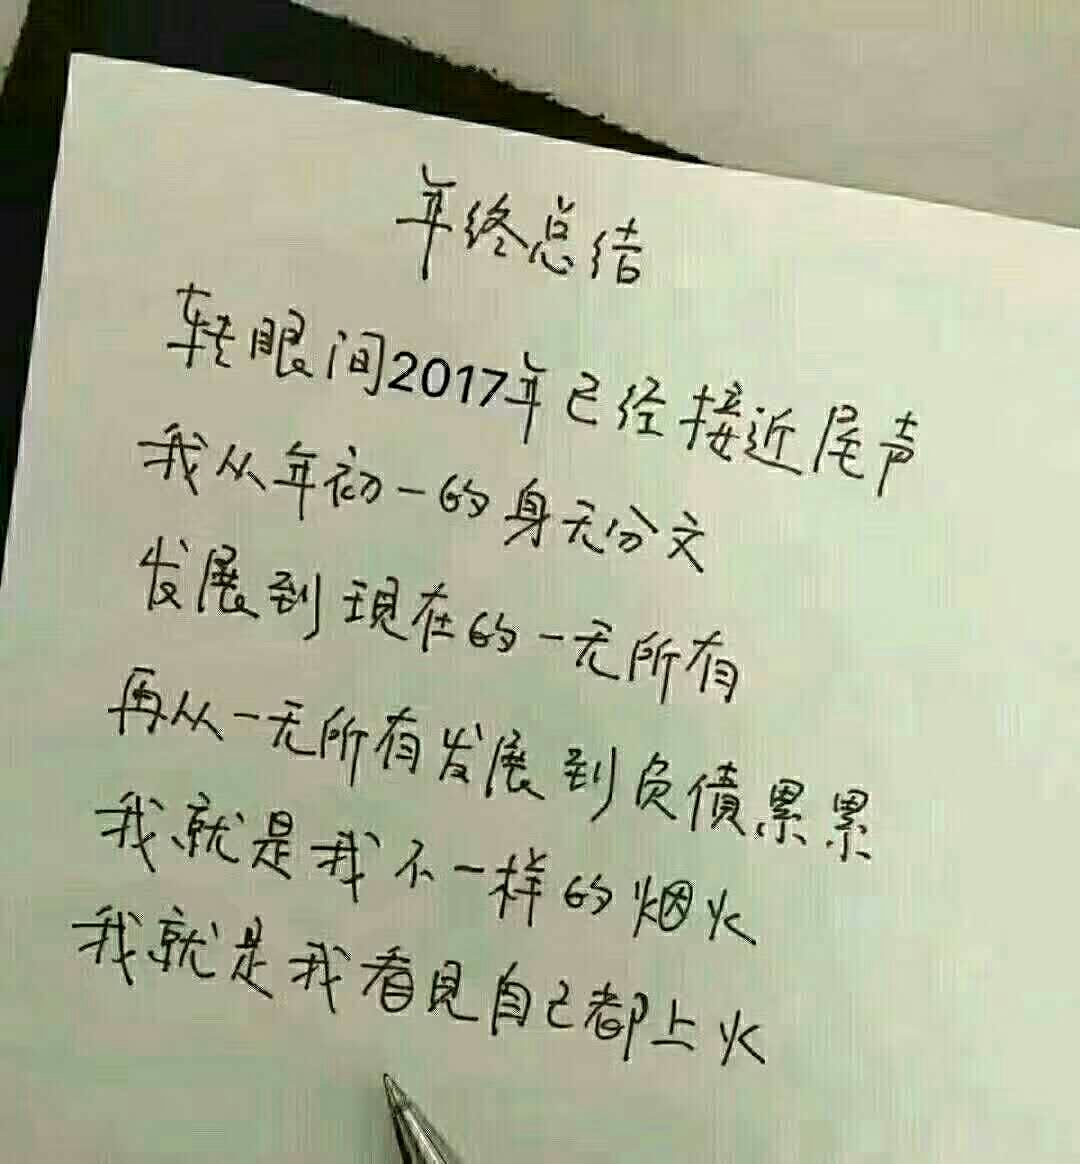 年终总结
转眼间2017年已经接近尾声
我从年初一的身无分文
发展到现在的一无所有
再从一无所有发展到负債累累
我就是我不一样的烟火
我就是我看見自己都上火